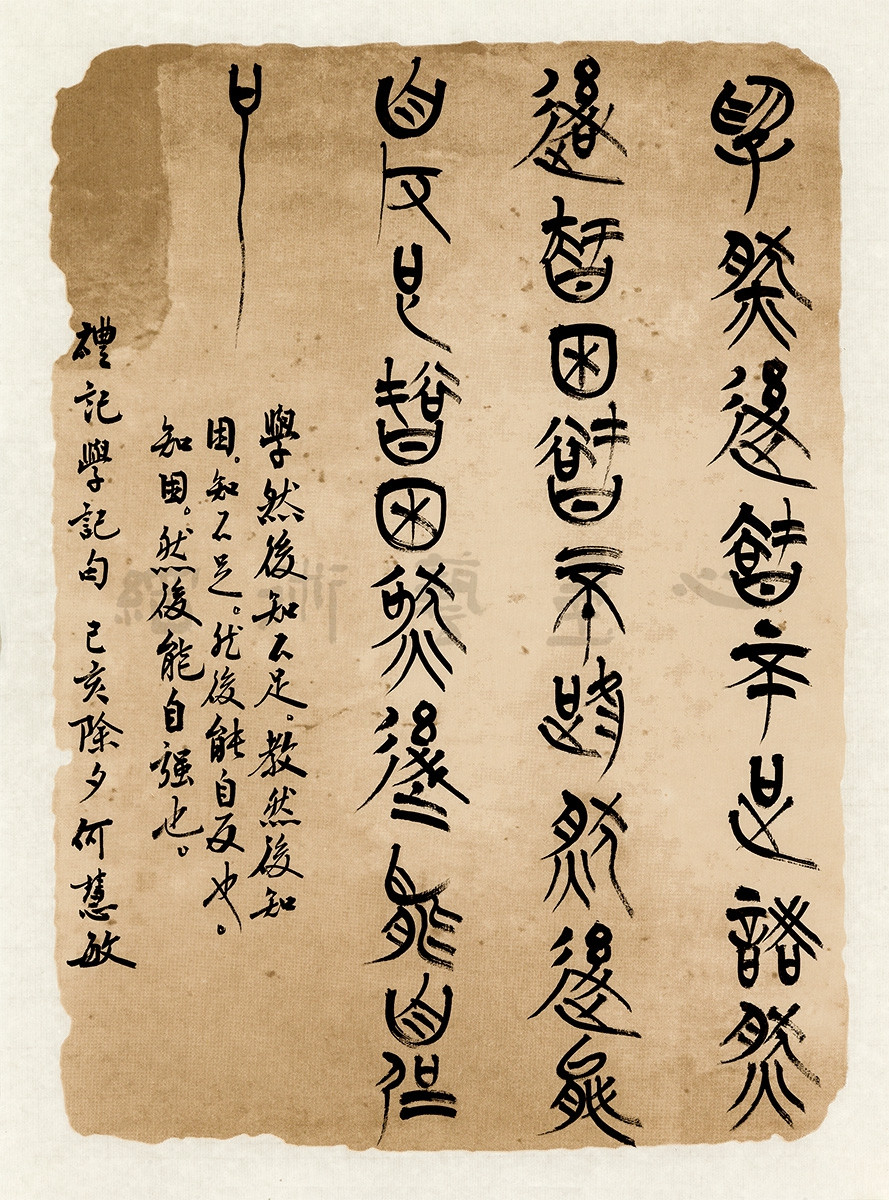 學然後知不足教然
後知困知不足然後能
自反也知困然後能自強
也
學然後知不足。教然後知
困。知不足。然後能自反也。
知困。然後能自强也。
禮記學記句 己亥除夕 何慧敏